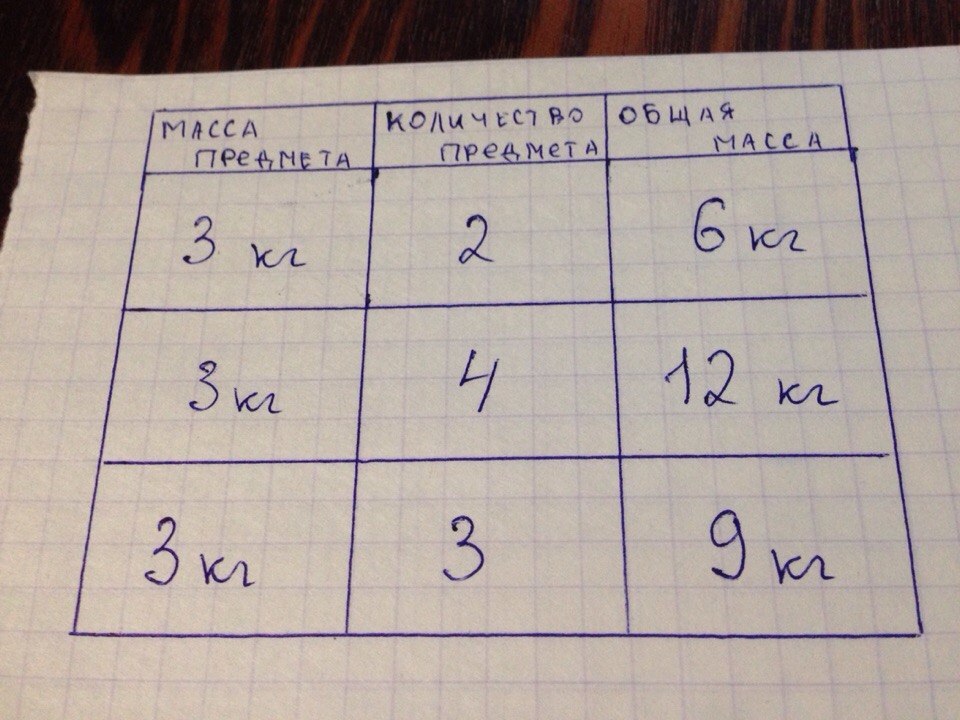 МАССА
ПРЕДМЕТА
КОЛИЧЕСТВО
ПРЕДМЕТА
ОБЩАЯ
МАССА
3 кг
2
6 кг
3 кг
4
12 кг
3 кг
3
9 кг